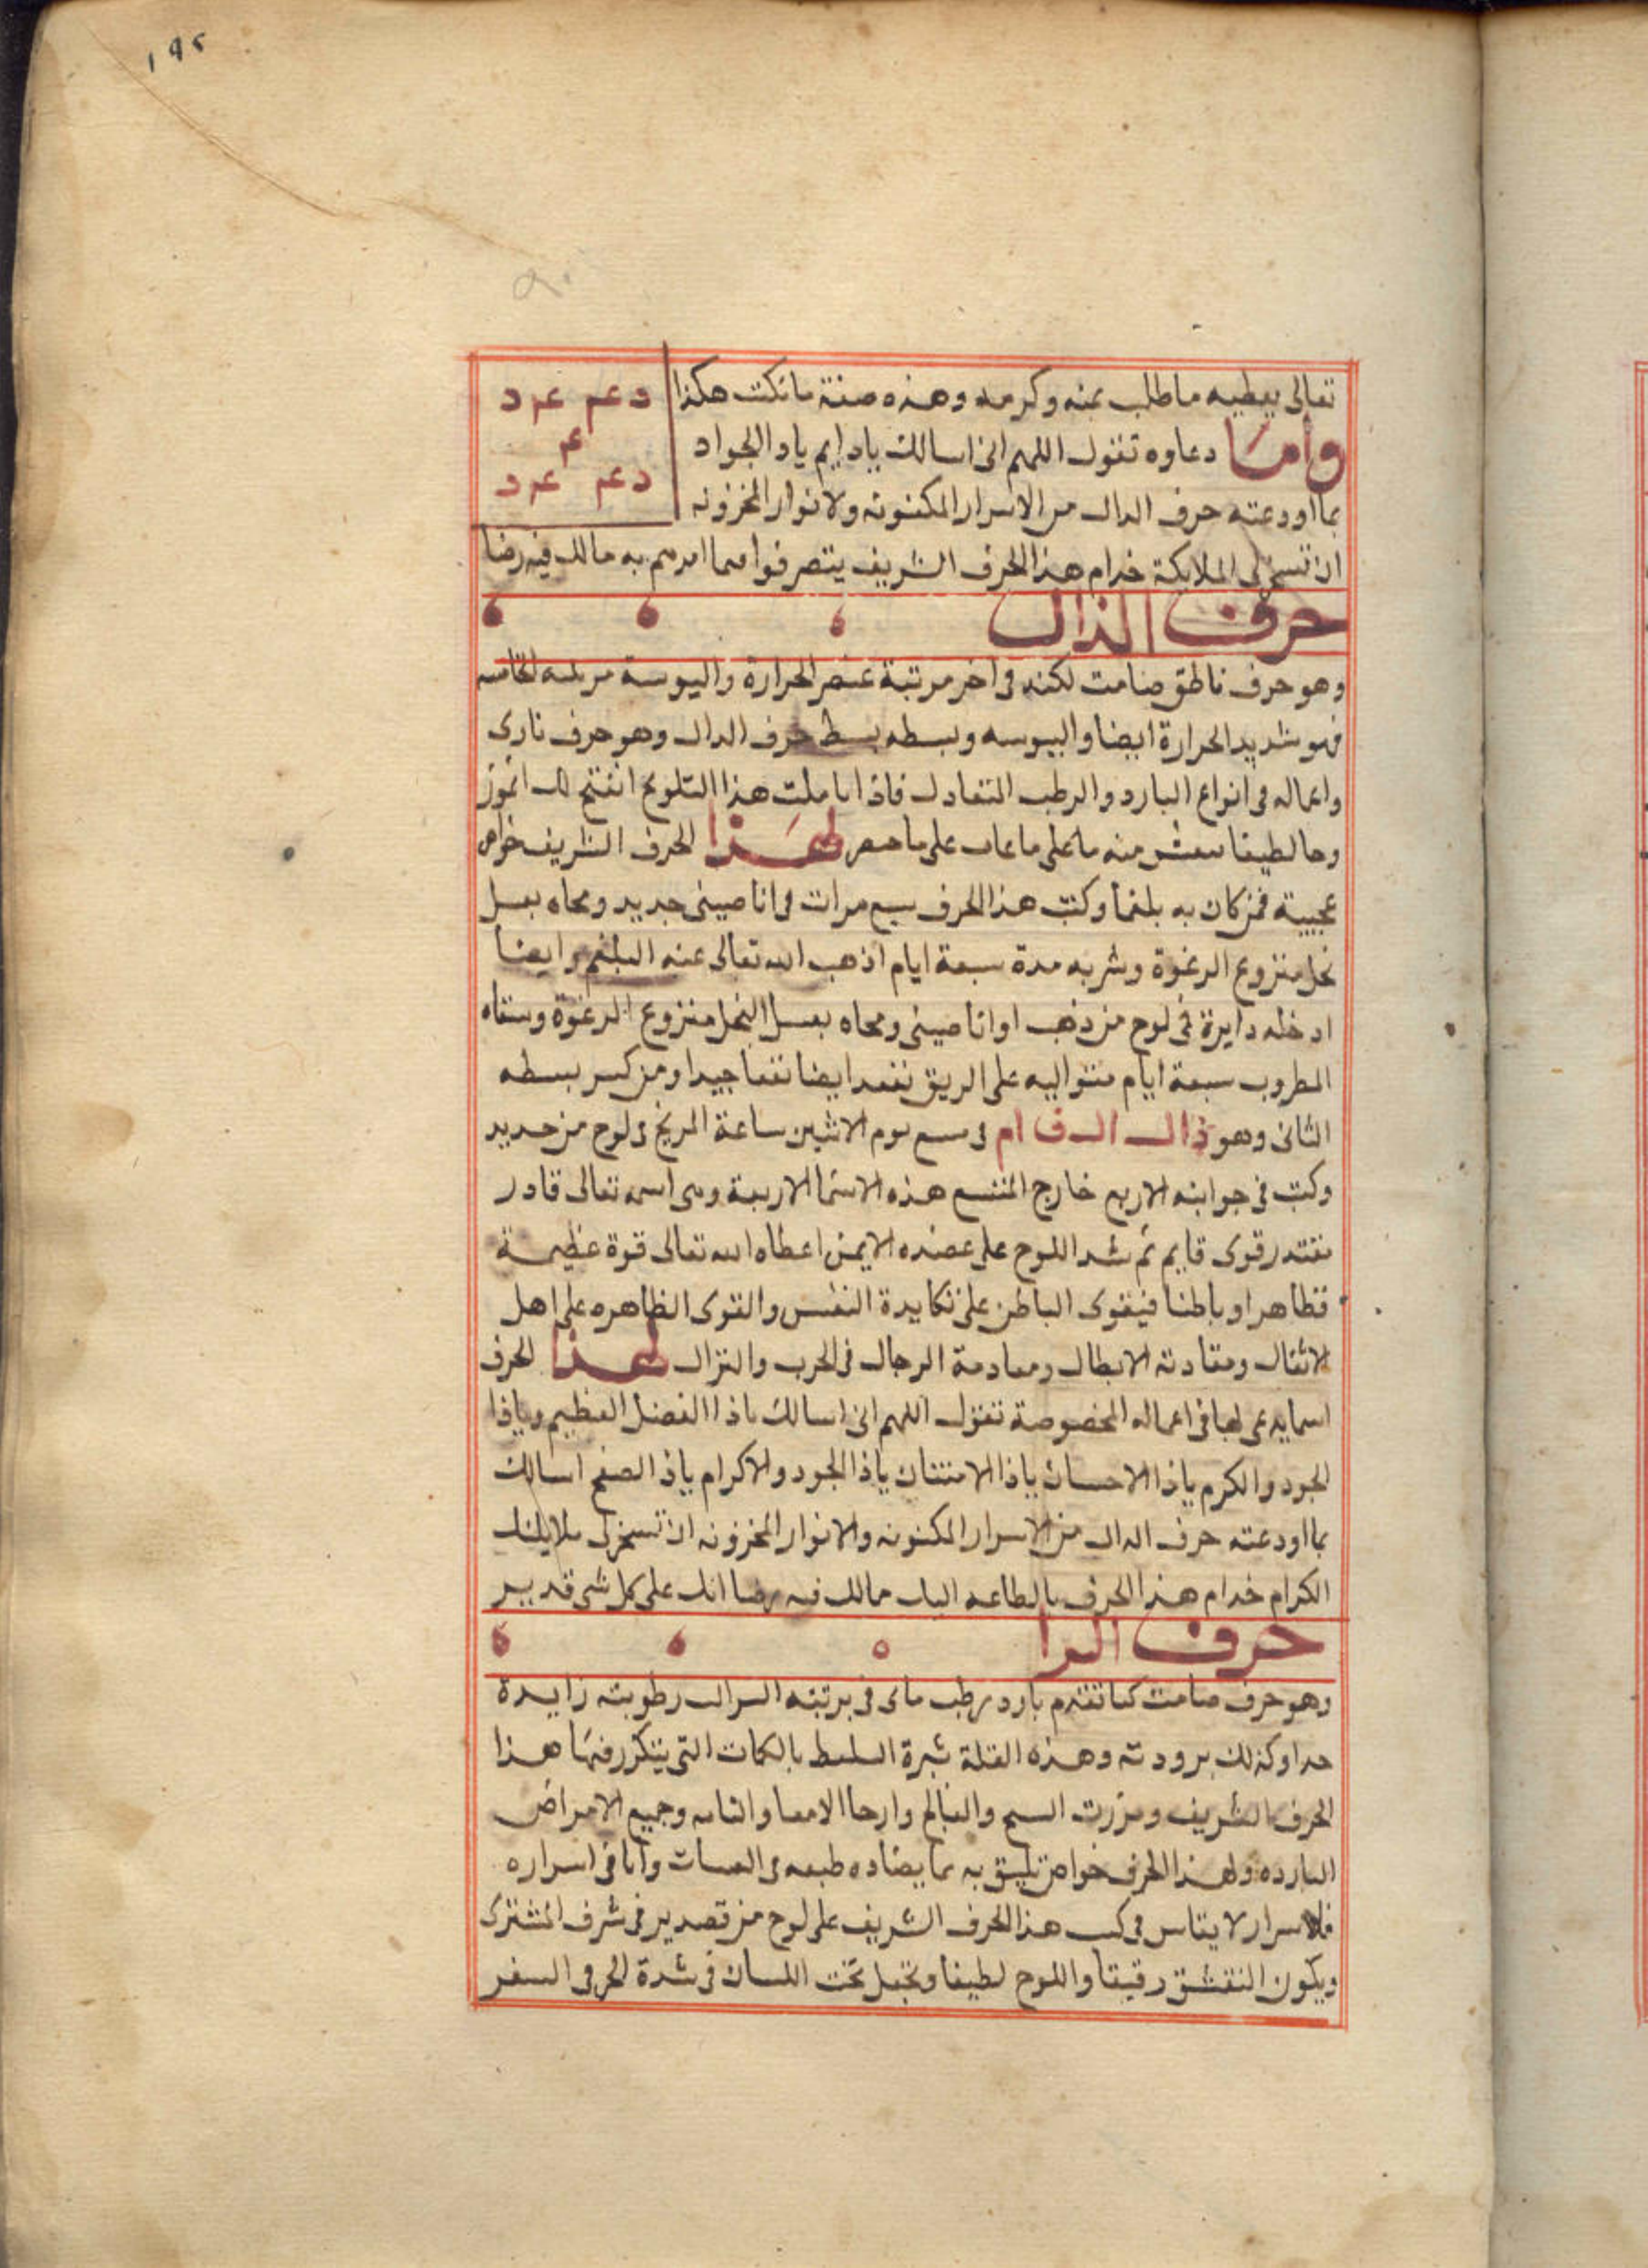 ١٩٥
تعالى يعطيه ما طلب بمنه وكرمه وهذه صفة ما تكتب هكذا
دعم عم د
م
دعم عم د
وأما دعاوه تقول اللهم انى اسالك يا دايم يا دا الجواد
بما اودعته حرف الدال من الاسرار المكنونه ولانوار المخزونه
ان تسخر لى الملايكة خدام هذا الحرف الشريف يتصرفوا فيما امرهم به مما لك فيه رضا
حرف الذال
وهو حرف ناطق صامت لكنه فى اخر مرتبة عنصر الحرارة واليبوسة الخامسه
فهو شديد الحرارة ايضا واليبوسه وبسطه بسط حرف الدال وهو حرف نارى
واعماله فى انواع البارد والرطب التعادل فاذا تاملت هذا التلويح انفتح لك
لطيفا منه ما على على ما لهذا الحرف الشريف خواص
عجيبة فمن كان به بلغما وكتب هذا الحرف سبع مرات فى انا صينى جديد ومحاه بعسل
نحل منزوع الرغوة وشربه مدة سبعة ايام اذهب الله تعالى عنه البلغم وايضا
ادخله دايرة فى لوح من ذهب او انا صينى ومحاه بعسل النحل منزوع الرغوة وسقاه
المطروب سبعة ايام متواليه على الريق نفعه ايضا نفعا جيدا ومن كسر بسطه
الثانى وهو ذ ال ال ف ا م فى يوم الاثنين ساعة المريخ فى لوح من حديد
وكتب فى جوانبه الاربع خارج المتسع هذه الاسما الاربعة وهى اسمه تعالى قادر
مقتدر قوى قايم ثم شد اللوح على عضده الايمن اعطاه الله تعالى قوة عظيمة
ظاهرا وباطنا فيقوى الباطن على مكايدة النفس والقوى الظاهره على اهل
الاثقال الابطال ومصادمة الرجال فى الحرب والنزال لهذا الحرف
اسما يدعى بها فى اعماله المخصوصة تقول اللهم انى اسالك ياذا الفضل العظيم وياذا
الجود والكرم ياذا الاحسان ياذا الامتنان ياذا الجود والاكرام ياذ الصفح اسالك
بما اودعته حرف الدال من الاسرار المكنونه والانوار المخزونه ان تسخر لى ملايكتك
الكرام خدام هذا الحرف بالطاعه مما لك فيه رضا انك على كل شى قدير
حرف الرا
وهو حرف صامت كما تقدم بارد رطب ماى فى رطوبته زايدة
جدا وكذلك برودته وهذه بالكمات التى يتكرر فيها هذا
الحرف الشريف والفالج وارحا الامعا وجميع الامراض
البارده ولهذا الحرف خواص تليق به مما يضاده طبعه واما فى اسراره
فلاسرار لا يقاس هذا الحرف الشريف على لوح من قصدير فى شرف المشترى
ويكون النقش رقيقا واللوح لطيفا ويجعل تحت اللسان فى شدة الحر فى السفر